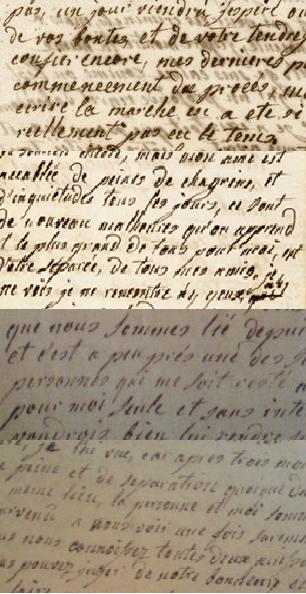 pas, un jour viendra j'espère où
de vos bontés et de votre tendres
confier encore, mes dernieres p
commencement du procès, un
ecrire la marche en a ete si
reellement pas eu le tems.
mais mon ame est
accablée de peines de chagrins, et
d'inquietudes tous les jours, ce sont
de nouveau malheures qu'on apprend
et le plus grand de tous pour moi, est
d'etre separée, de tous mes amis, je
ne vois je me rencontre
que nous sommes lié depui
et c'est a peu prés une des s
personnes qui me soit resté
pour moi seule et sans inte
voudrois bien lui rendre s
je l'ai vue, car apres trois mo
de peine et de separation quoique d
meme lieu, la personne et moi somm
parvenu a nous voir une fois surem
us nous connoissez toutes deux ainsi
us pouvez juger de notre bonheur e